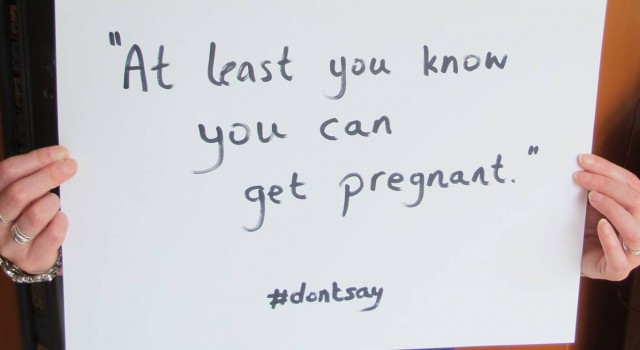 "At least you know
you can
get pregnant."
#dontsay